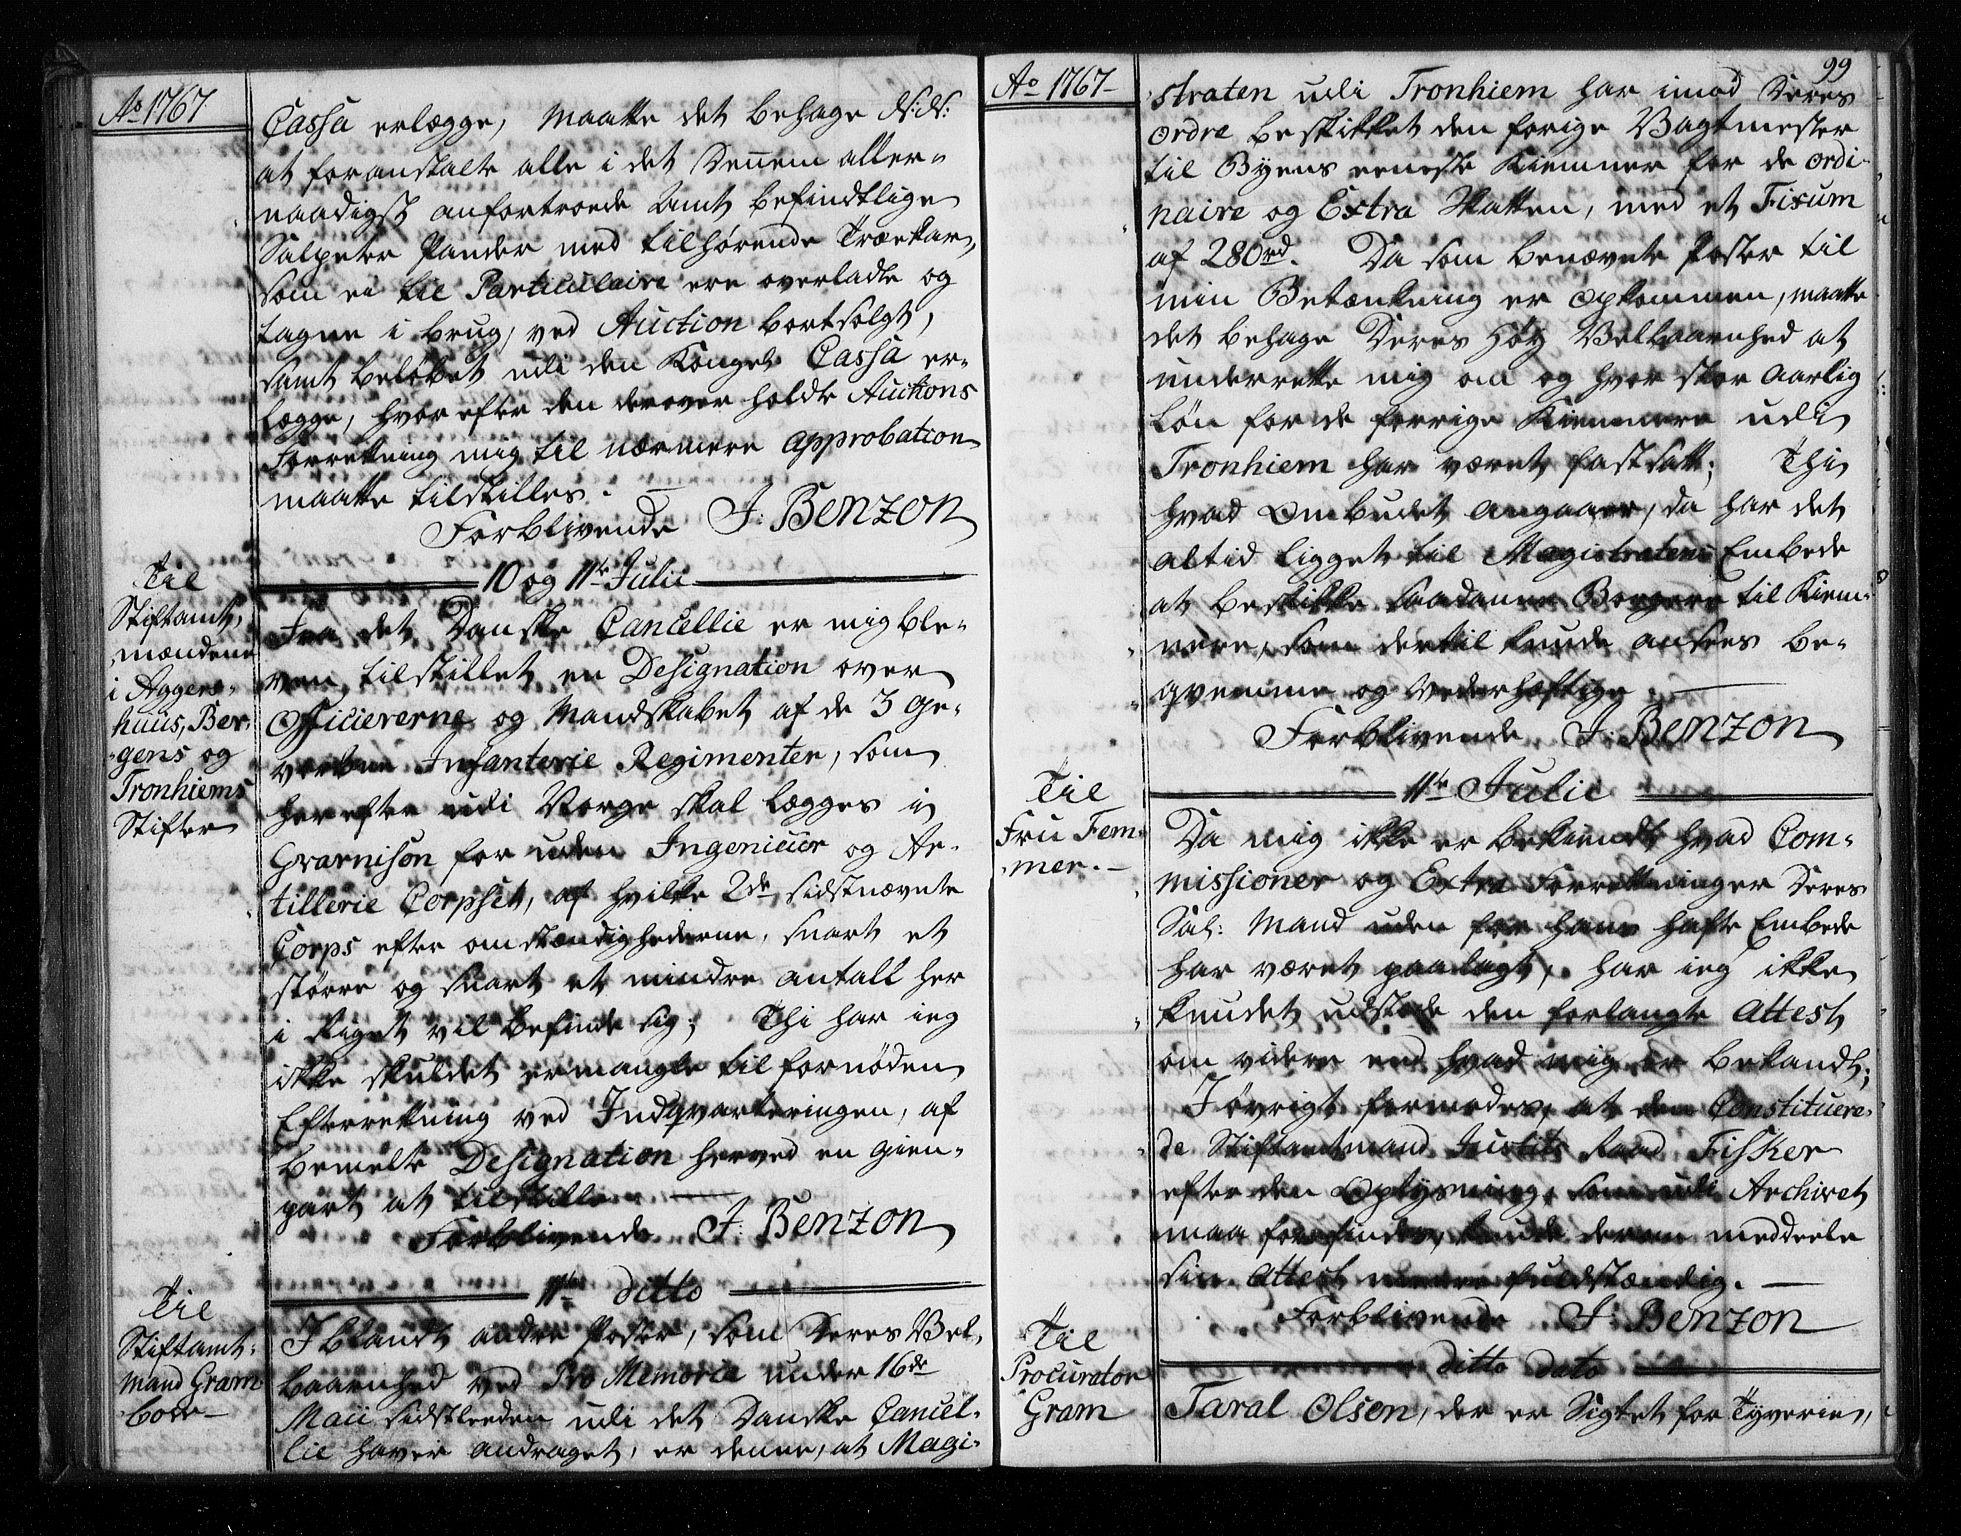 Ao 1767
Cassa erlægge, maatte det behage d:d:
at foranstalte alle i det Dennem aller-
naadigst anfortroede Amt befindtlige
Salpeter Pander med tilhørende Træekar,
som ei til Particulaire ere overladte og
tagne i brug, ved Auction bortsolgt,
samt beløbet udi den Kongel: Cassa er-
lægge, hvorefter den derover holdte Auctions
Forretning mig til nærmere approbation
maatte tilstilles.
Forblivende J: Benzon
10 og 11te Julii
Til
Stiftamt,
mændene
i Agger-
huus, Ber-
gens og
Tronhiems
Stifter
Fra det Danske Cancellie er mig ble-
ven tilstillet en Designation over
Officiererne og Mandskabet af de 3 ge-
vorbne Infanterie Regimenter, som
herefter udi Norge skal lægges i
Gvarnison for uden Ingenieur og Ar-
tillerie Corpset, af hvilke 2de sidstnævnte
Corps efter omstændighederne, snart et
større og snart et mindre antall her
i Riget vil befinde sig; Thi har ieg
ikke skuldet ermangle til fornøden
Efterretning ved Indqvarteringen, af
bemelte Designation herved en gien-
part at tilstille.
Forblivende J: Benzon
11te ditto
Til
Stiftamt-
mand Gram
boe
Iblandt andre Poster, som Deres Vel-
baarenhed ved Pro Memoria under 16de
Maii sidstleeden udi det Danske Cancel-
lie haver andraget, er denne, at Magi-
99
Ao 1767
straten udi Tronhiem har imod Deres
ordre beskikket den forige Vagtmester
til Byens eeneste Kiemner for de ordi-
naire og Extra Skatter, med et Fixum
af 280rd. Da som benævnte Poster til
min Betænkning er opkommen, maatte
det behage Deres Høy Velbaarnhed at
underrette mig om og hvor stor aarlig
løn for de forrige Kiemnere udi
Tronhiem har været fastsatt; Thi
hvad Ombudet angaaer, da har det
altid ligget til Magistratens Embede
at beskikke saadanne Borgere til Kiem-
nere, som dertil kunde ansees be-
qvemme og Vederhæftige.
Forblivende J: Benzon
11te Julii
Til
Fru Fem-
mer.
Da mig ikke er bekiendt hvad Com-
missioner og Extra Forretninger Deres
Sal: Mand uden for hans hafte Embede
har været paalagt, har ieg ikke
kundet udstæde den forlangte Attest
om videre end hvad mig er bekandt;
Iøvrigt formodes, at den Constituere-
de Stiftamtmand Justits Raad Fisker
efter den Oplysning, som udi Archivet
maa forefindes, kunde derom meddeele
sin Attest meere fuldstændig.
Forblivende J: Benzon
ditto dato
Til
Procurator
Gram
Taral Olsen, der er Sigtet for Tyverie,